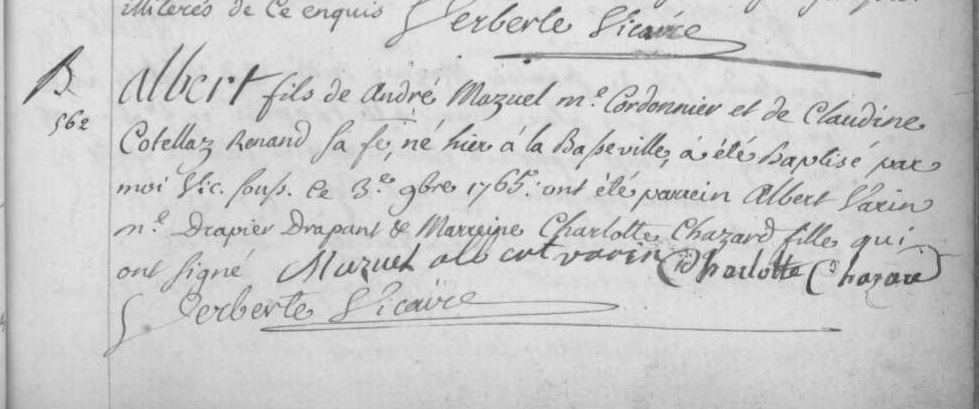 illiterés de ce enquis Gerberle Vicaire
B
562
Albert fils de André Mazuel m.e Cordonnier et de Claudine
Cotellaz Renand sa fe, né hier á la Basseville, á été Baptisé par
moi Vic. souss. ce 3.e 9bre 1765. ont été parrein Albert Varin
m.e Drapier Drapant & Marreine Charlotte Chazard fille qui
ont signé Mazuel albert varin Charlotte Chazard
Gerberle Vicaire